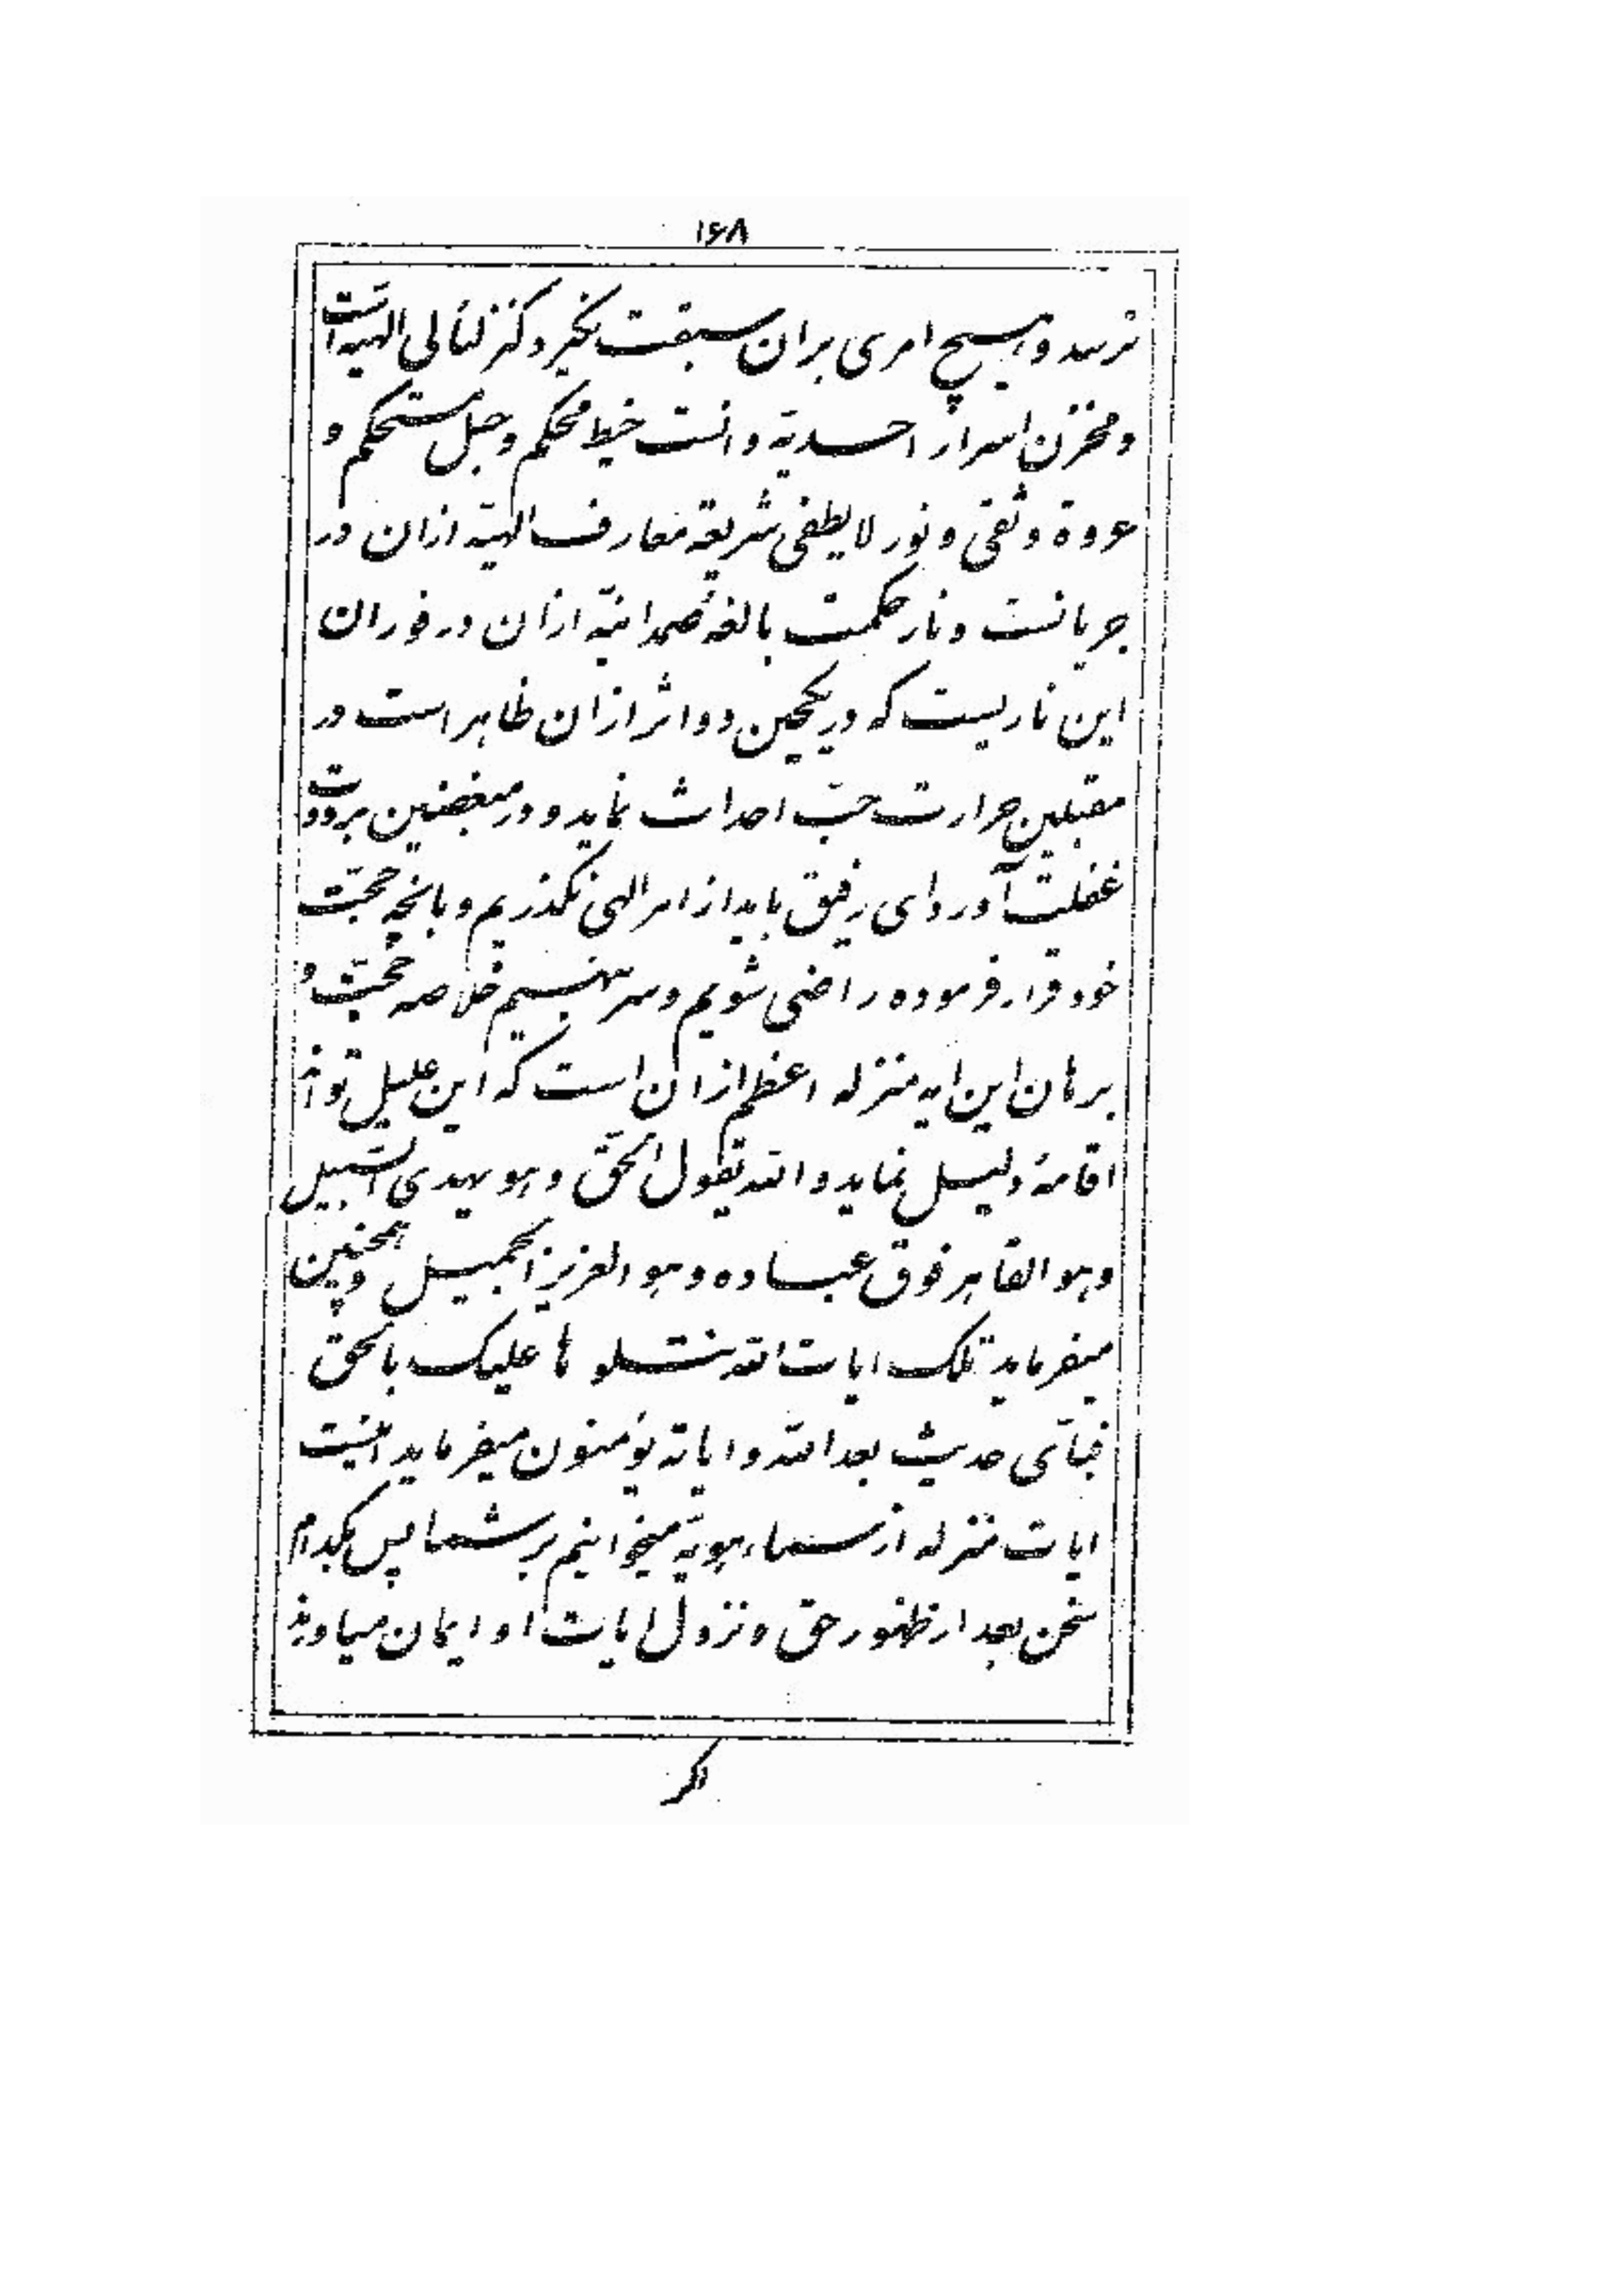 ۱۶۸
نرسد و هیچ امری بران سبقت نگیرد کنز لئالی الهیه است
و مخزن اسرار احدیة و انست خیط محکم و حبل مستحکم و
عروة وثقی و نور لا یطفی شریعهٔ معارف الهیّه ازان در
جریانست و نار حکمت بالغهٔ صمدانیّه ازان در فوران
این ناریست که در یکحین دو اثر ازان ظاهر است در
مقبلین حرارت حبّ احداث نماید و در مبغضین برودت
غفلت آورد ای رفیق باید از امر الهی نگذریم و بانچه حجّت
خود قرار فرموده راضی شویم و سر بنهیم خلاصه حجّت و
برهان این ایه منزله اعظم ازان است که این علیل تواند
اقامهٔ دلیل نماید و الله یقول الحقّ و هو یهدی السّبیل
و هو القاهر فوق عباده و هو العزیز الجمیل و همچنین
میفرماید تلک ایات الله نتلوها علیک بالحق
فبأی حدیث بعد الله و ایاته یؤمنون میفرماید اینست
ایات منزله از سماء هویّه میخوانیم بر شما پس بکدام
سخن بعد از ظهور حق و نزول ایات او ایمان میاورند
اگر